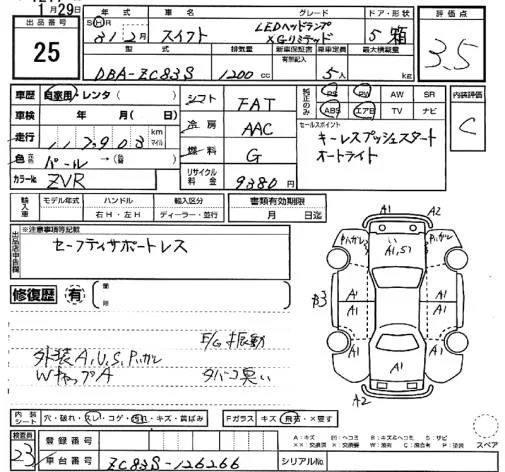 1月29日
出品番号
25
年式 車名 グレード ドア・形状
SⒽR 31 2月 スイフト LEDヘッドランプ XGリミテッド 5 箱
型式 排気量 新車保証書 有無記入 乗車定員 最大積載量
DBA-ZC83S 1200cc 5人 kg
評価点
3.5
車歴 自家用・レンタ( )
車検 年 月( 日)
走行 117903 km マイル
色 パール→( 色)
カラーNo ZVR
シフト FAT
冷房 AAC
燃料 G
リサイクル料金 9380円
純正のみ PS PW AW SR
ABS エアB TV ナビ
セールスポイント
キーレスプッシュスタート
オートライト
内装評価
C
輸入車 モデル年式 ハンドル 輸入区分
右H・左H ディーラー・並行
書類有効期限
月 日迄
出品店申告欄
※注意事項等記載
セーフティサポートレス
修復歴 有
E/G振動
外装A,U,S,Pハガレ
WキャップA タバコ臭い
A1 A2
Pハガレ い Pハガレ
A1,S1
A1 A1
B3 A1
A1 A1
A1
A2
内装シート 穴・破れ・スレ・コゲ・汚れ・キズ・黄ばみ
Fガラス キズ・飛石・×要す
検査員
23
登録番号
車台番号 ZC83S-126266
シリアルNo
A:キズ B:キズ&ヘコミ S:サビ
スペア